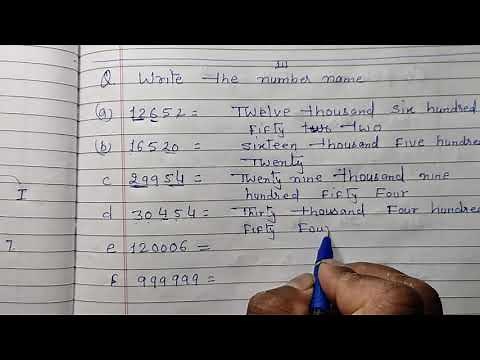 Q Write the number name
(a) 12652 = Twelve thousand six hundred
Fifty two two
(b) 16520 = sixteen thousand Five hundred
Twenty
c 29954 = Twenty nine thousand nine
hundred Fifty Four
d 30454 = Thirty thousand Four hundred
Fifty Four
e 120006 =
f 999999 =
I
7